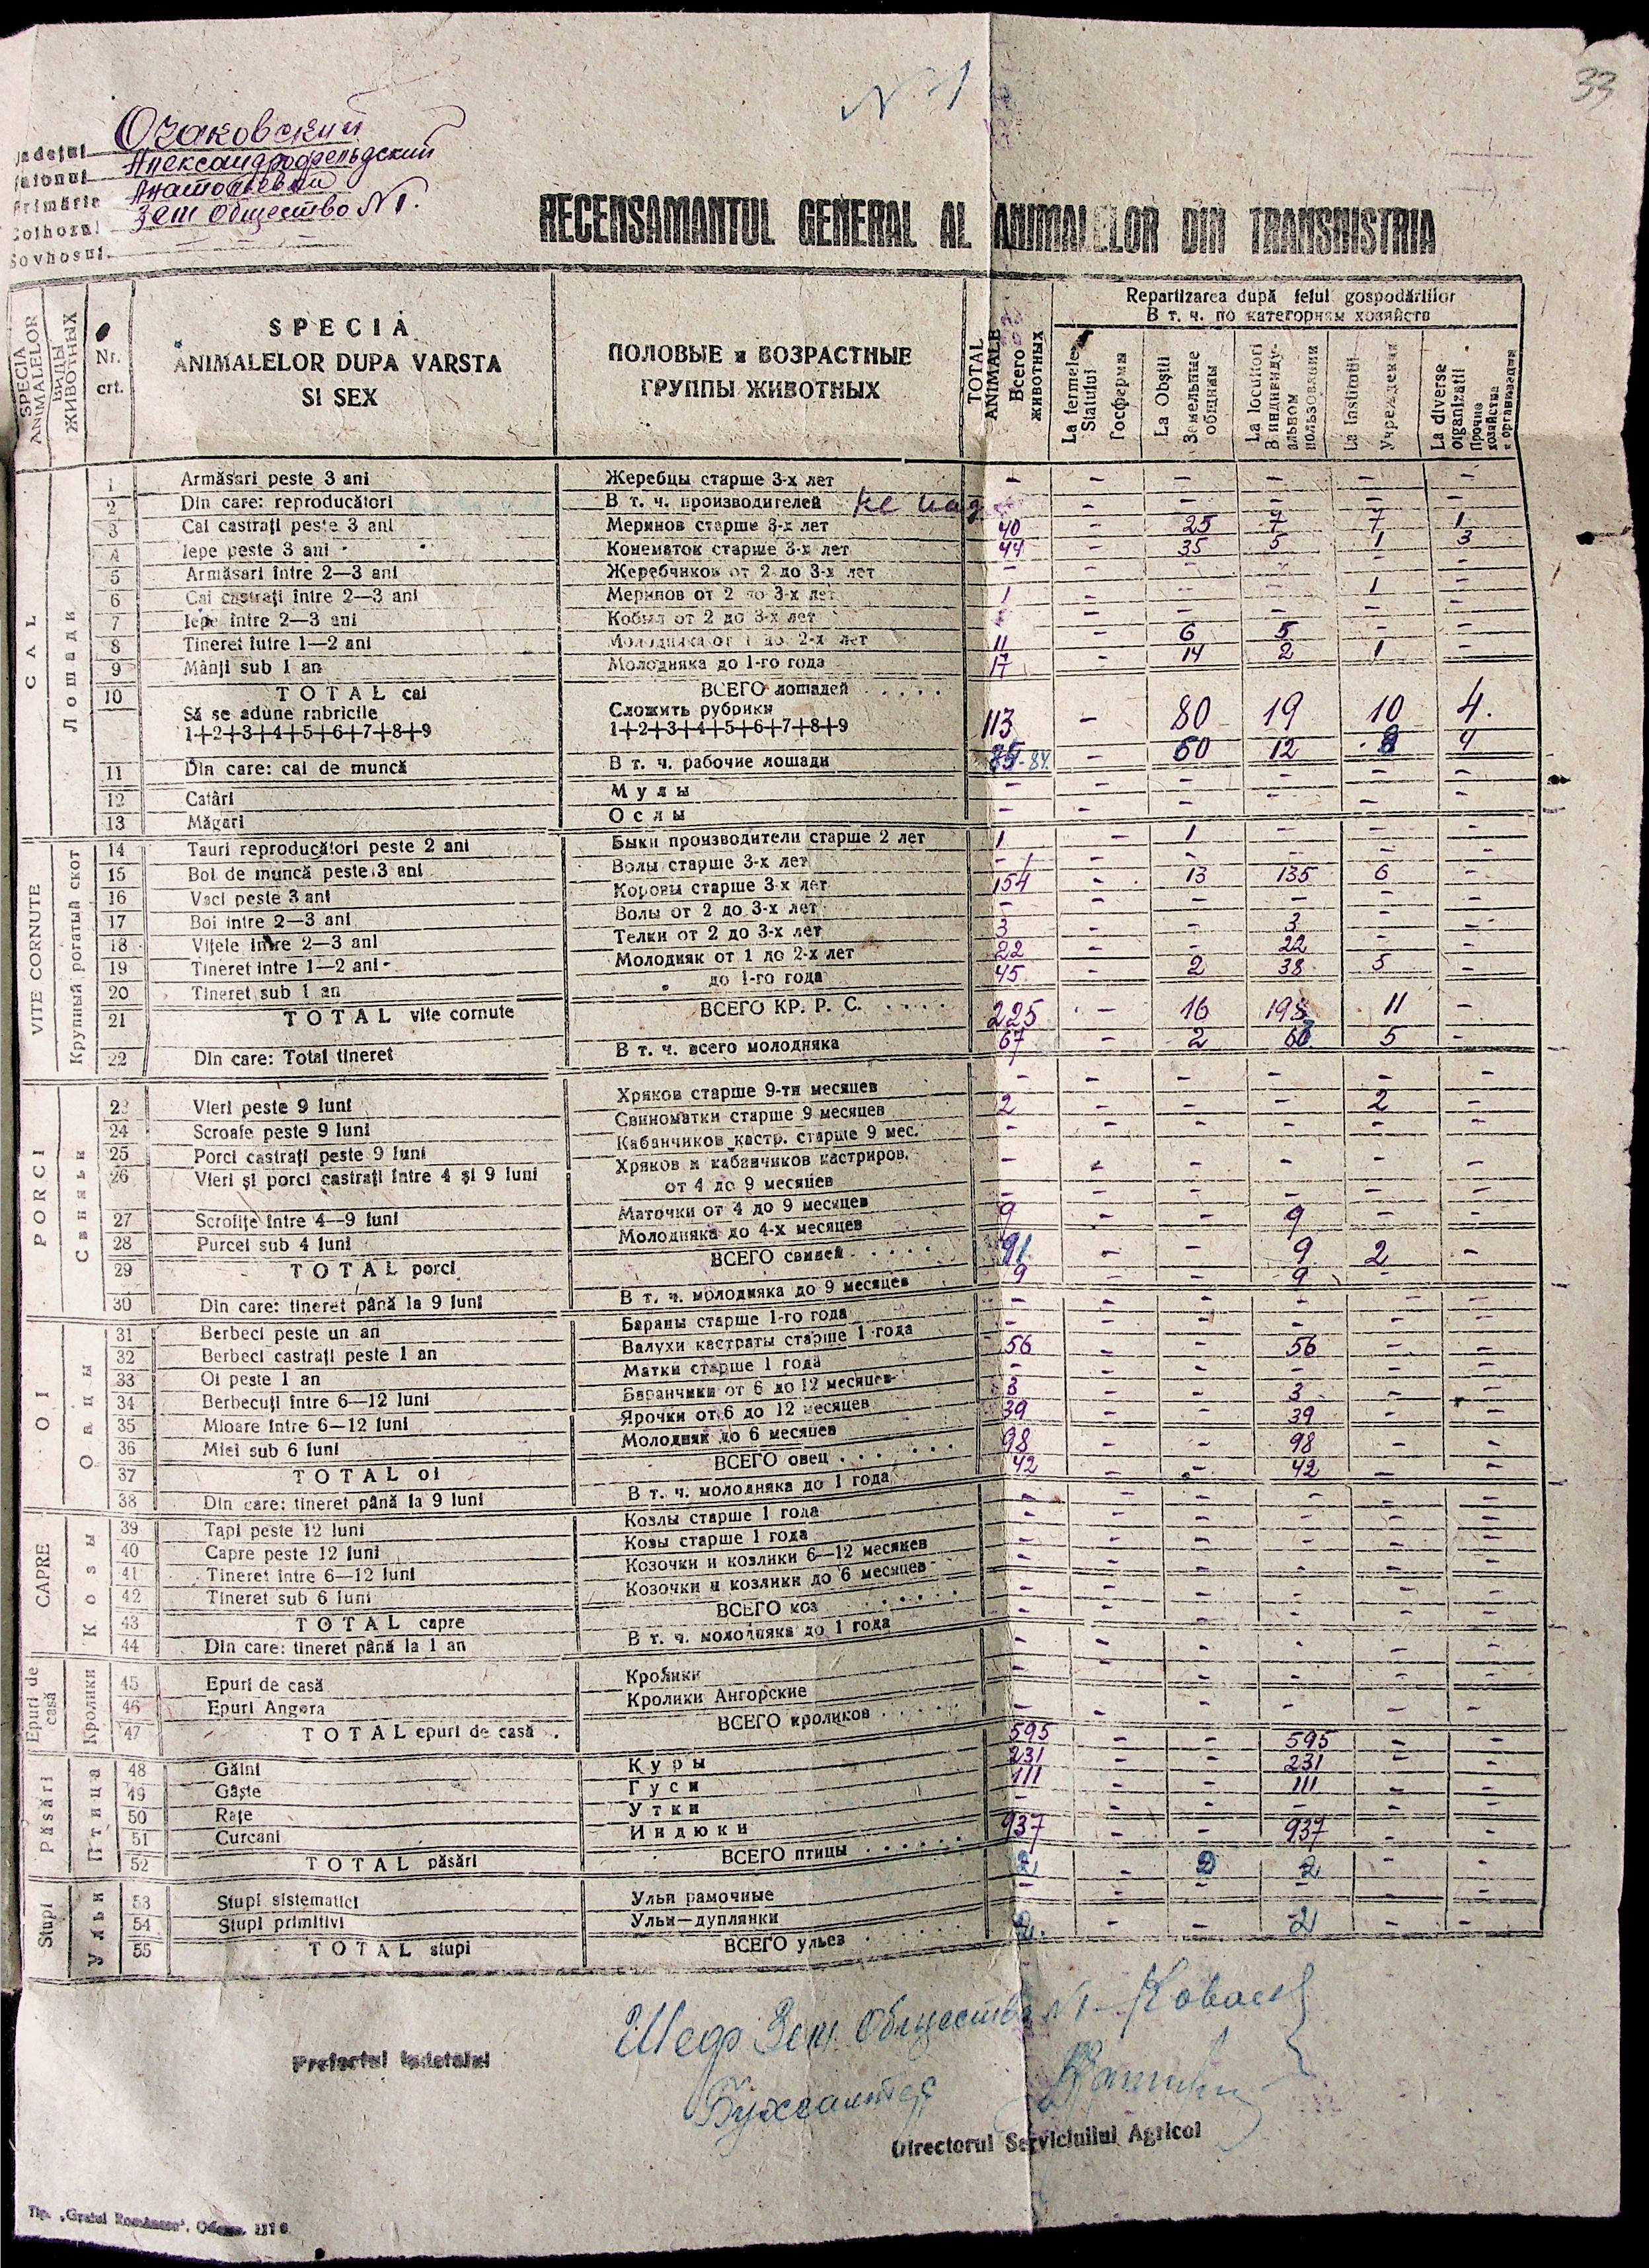 N-1
33
Judeţul Очаковский
Raionul Александрофельдский
Primăria Анатольевка
Colhozul Зем общество N1.
Sovhosul
RECENSAMANTUL GENERAL AL ANIMALELOR DIN TRANSNISTRIA
SPECIA ANIMALELOR
ВИДЫ ЖИВОТНЫХ
Nr. crt.
SPECIA
ANIMALELOR DUPA VARSTA
SI SEX
ПОЛОВЫЕ и ВОЗРАСТНЫЕ
ГРУППЫ ЖИВОТНЫХ
TOTAL ANIMALE
Всего животных
Repartizarea după felul gospodăriilor
В т. ч. по категориям хозяйств
La fermele Statului
Госфермы
La Obştii
Земельные общины
La locuitori
В индивидуальном пользовании
La Instituţii
Учреждения
La diverse organizatii
Прочие хозяйства и организации
CAL
Лошади
1 Armăsari peste 3 ani Жеребцы старше 3-х лет - - - - - -
2 Din care: reproducători В т. ч. производителей - - - - -
3 Cai castraţi peste 3 ani Меринов старше 3-х лет 40 - 25 7 7 1
4 Iepe peste 3 ani Конематок старше 3-х лет 44 - 35 5 1 3
5 Armăsari între 2—3 ani Жеребчиков от 2 до 3-х лет - - - - - -
6 Cai castraţi între 2—3 ani Меринов от 2 до 3-х лет 1 - - - 1 -
7 Iepe între 2—3 ani Кобыл от 2 до 3-х лет - - - - - -
8 Tineret între 1—2 ani Молодняка от 1 до 2-х лет 11 - 6 5 - -
9 Mânji sub 1 an Молодняка до 1-го года 17 - 14 2 1 -
10 TOTAL cai ВСЕГО лошадей . . . .
Să se adune rubricile Сложить рубрики
1+2+3+4+5+6+7+8+9 1+2+3+4+5+6+7+8+9 113 - 80 19 10 4.
11 Din care: cai de muncă В т. ч. рабочие лошади 85-84. - 60 12 8 4
12 Catâri Мулы - - - - - -
13 Măgari Ослы - - - - - -
VITE CORNUTE
Крупный рогатый скот
14 Tauri reproducători peste 2 ani Быки производители старше 2 лет 1 - 1 - - -
15 Boi de muncă peste 3 ani Волы старше 3-х лет - - - - - -
16 Vaci peste 3 ani Коровы старше 3-х лет 154 - 13 135 6 -
17 Boi intre 2—3 ani Волы от 2 до 3-х лет - - - - - -
18 Viţele între 2—3 ani Телки от 2 до 3-х лет 3 - - 3 - -
19 Tineret intre 1—2 ani Молодняк от 1 до 2-х лет 22 - - 22 - -
20 Tineret sub 1 an до 1-го года 45 - 2 38 5 -
21 TOTAL vite cornute ВСЕГО КР. Р. С. . . . . 225 - 16 198 11 -
22 Din care: Total tineret В т. ч. всего молодняка 67 - 2 60 5 -
PORCI
Свиньи
23 Vieri peste 9 luni Хряков старше 9-ти месяцев - - - - - -
24 Scroafe peste 9 luni Свиноматки старше 9 месяцев 2 - - - 2 -
25 Porci castraţi peste 9 luni Кабанчиков кастр. старше 9 мес. - - - - - -
26 Vieri şi porci castraţi între 4 şi 9 luni Хряков и кабанчиков кастриров.
от 4 до 9 месяцев - - - - - -
27 Scrofiţe între 4—9 luni Маточки от 4 до 9 месяцев - - - - - -
28 Purcei sub 4 luni Молодняка до 4-х месяцев 9 - - 9 - -
29 TOTAL porci ВСЕГО свиней . . . . . - - 9 2 -
30 Din care: tineret până la 9 luni В т. ч. молодняка до 9 месяцев 9 - - 9 -
OI
Овцы
31 Berbeci peste un an Бараны старше 1-го года - - - - - -
32 Berbeci castraţi peste 1 an Валухи кастраты старше 1 года - - - - - -
33 Oi peste 1 an Матки старше 1 года 56 - - 56 - -
34 Berbecuţi între 6—12 luni Баранчики от 6 до 12 месяцев - - - - - -
35 Mioare între 6—12 luni Ярочки от 6 до 12 месяцев 3 - - 3 - -
36 Miei sub 6 luni Молодняк до 6 месяцев 39 - - 39 - -
37 TOTAL oi ВСЕГО овец . . . . . . 98 - - 98 - -
38 Din care: tineret până la 9 luni В т. ч. молодняка до 1 года 42 - - 42 - -
CAPRE
Козы
39 Ţapi peste 12 luni Козлы старше 1 года - - - - - -
40 Capre peste 12 luni Козы старше 1 года - - - - - -
41 Tineret între 6—12 luni Козочки и козлики 6—12 месяцев - - - - - -
42 Tineret sub 6 luni Козочки и козлики до 6 месяцев - - - - - -
43 TOTAL capre ВСЕГО коз . . . . . - - - - - -
44 Din care: tineret până la 1 an В т. ч. молодняка до 1 года - - - - - -
Epuri de casă
Кролики
45 Epuri de casă Кролики - - - - - -
46 Epuri Angora Кролики Ангорские - - - - - -
47 TOTAL epuri de casă . ВСЕГО кроликов . . . . . - - - - - -
Păsări
Птица
48 Găini Куры 595 - - 595 - -
49 Gâşte Гуси 231 - - 231 - -
50 Raţe Утки 111 - - 111 - -
51 Curcani Индюки - - - - - -
52 TOTAL păsări ВСЕГО птицы . . . . . 937 - - 937 - -
Stupi
Ульи
53 Stupi sistematici Ульи рамочные 2 - 2 2 - -
54 Stupi primitivi Ульи—дуплянки - - - - - -
55 TOTAL stupi ВСЕГО ульев 2. - - 2 - -
Шеф Зем. Общества N1-
Prefectul Iudetului
Бухгалтер
Directorul Serviciuilui Agricol
Tip. „Graiul Românesc",